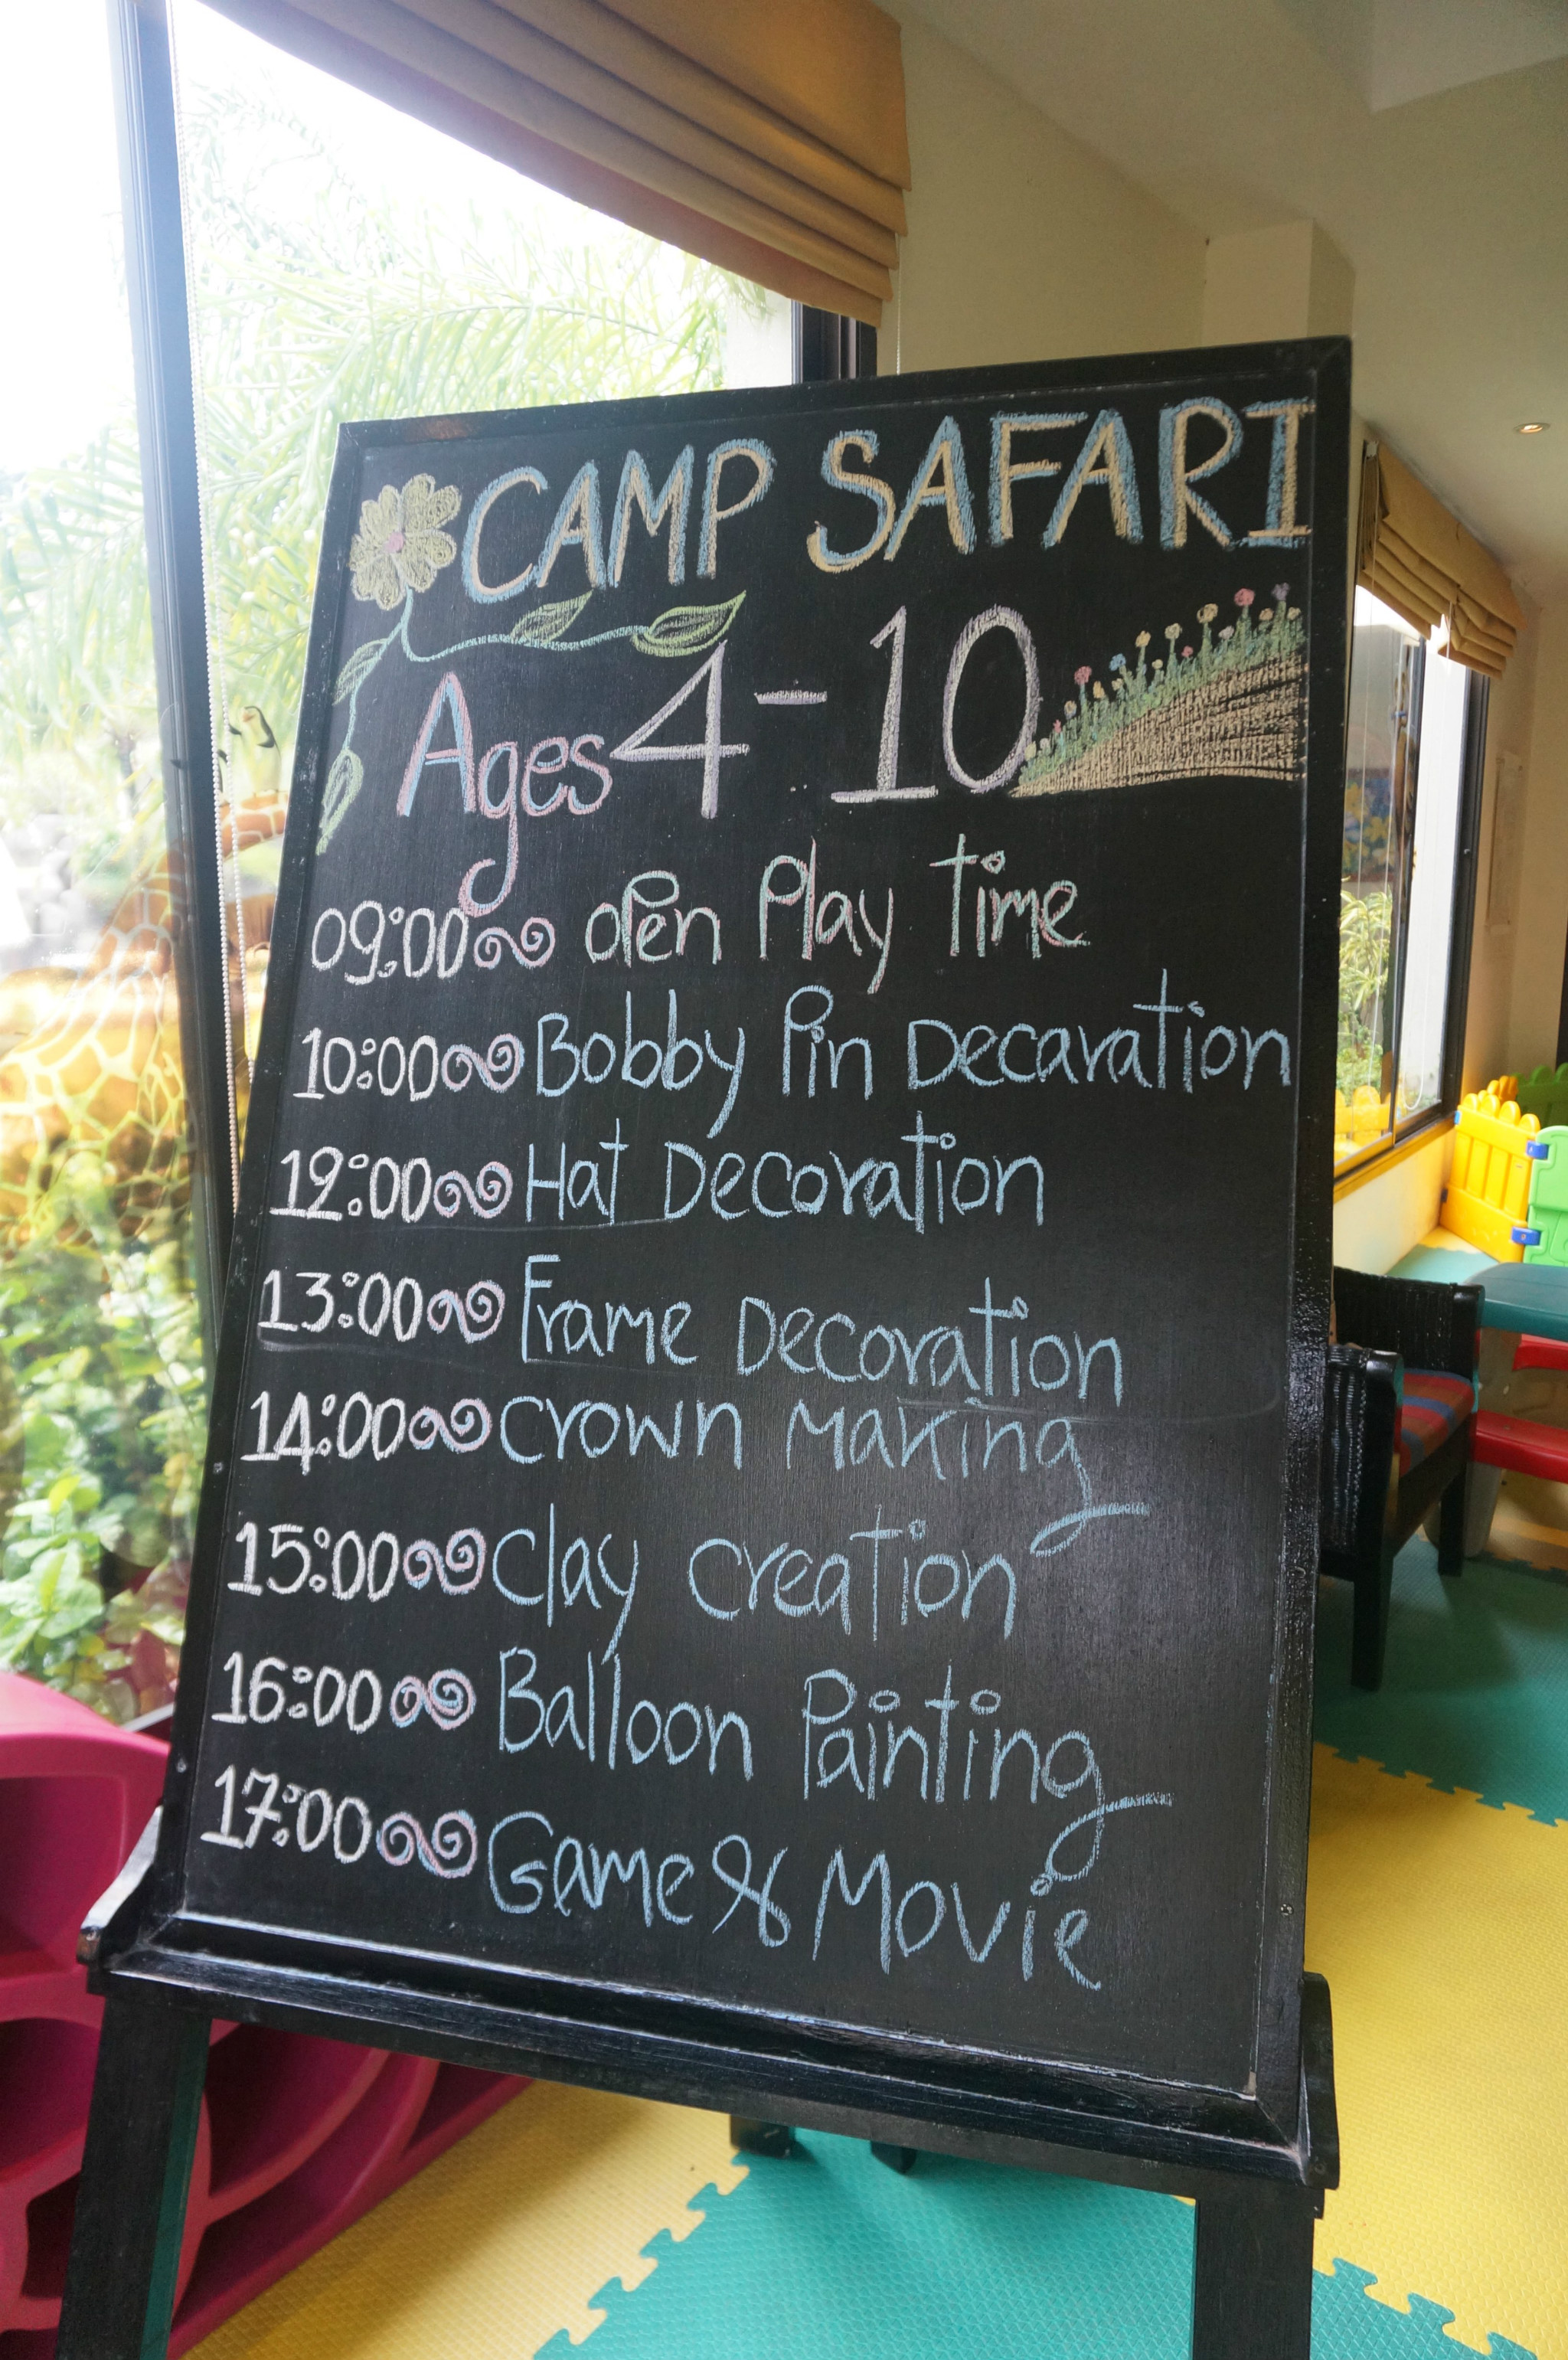 CAMP SAFARI
Ages 4-10
09:00 open Play time
10:00 Bobby Pin Decaration
12:00 Hat Decoration
13:00 Frame Decoration
14:00 Crown Making
15:00 Clay Creation
16:00 Balloon Painting
17:00 Game & Movie